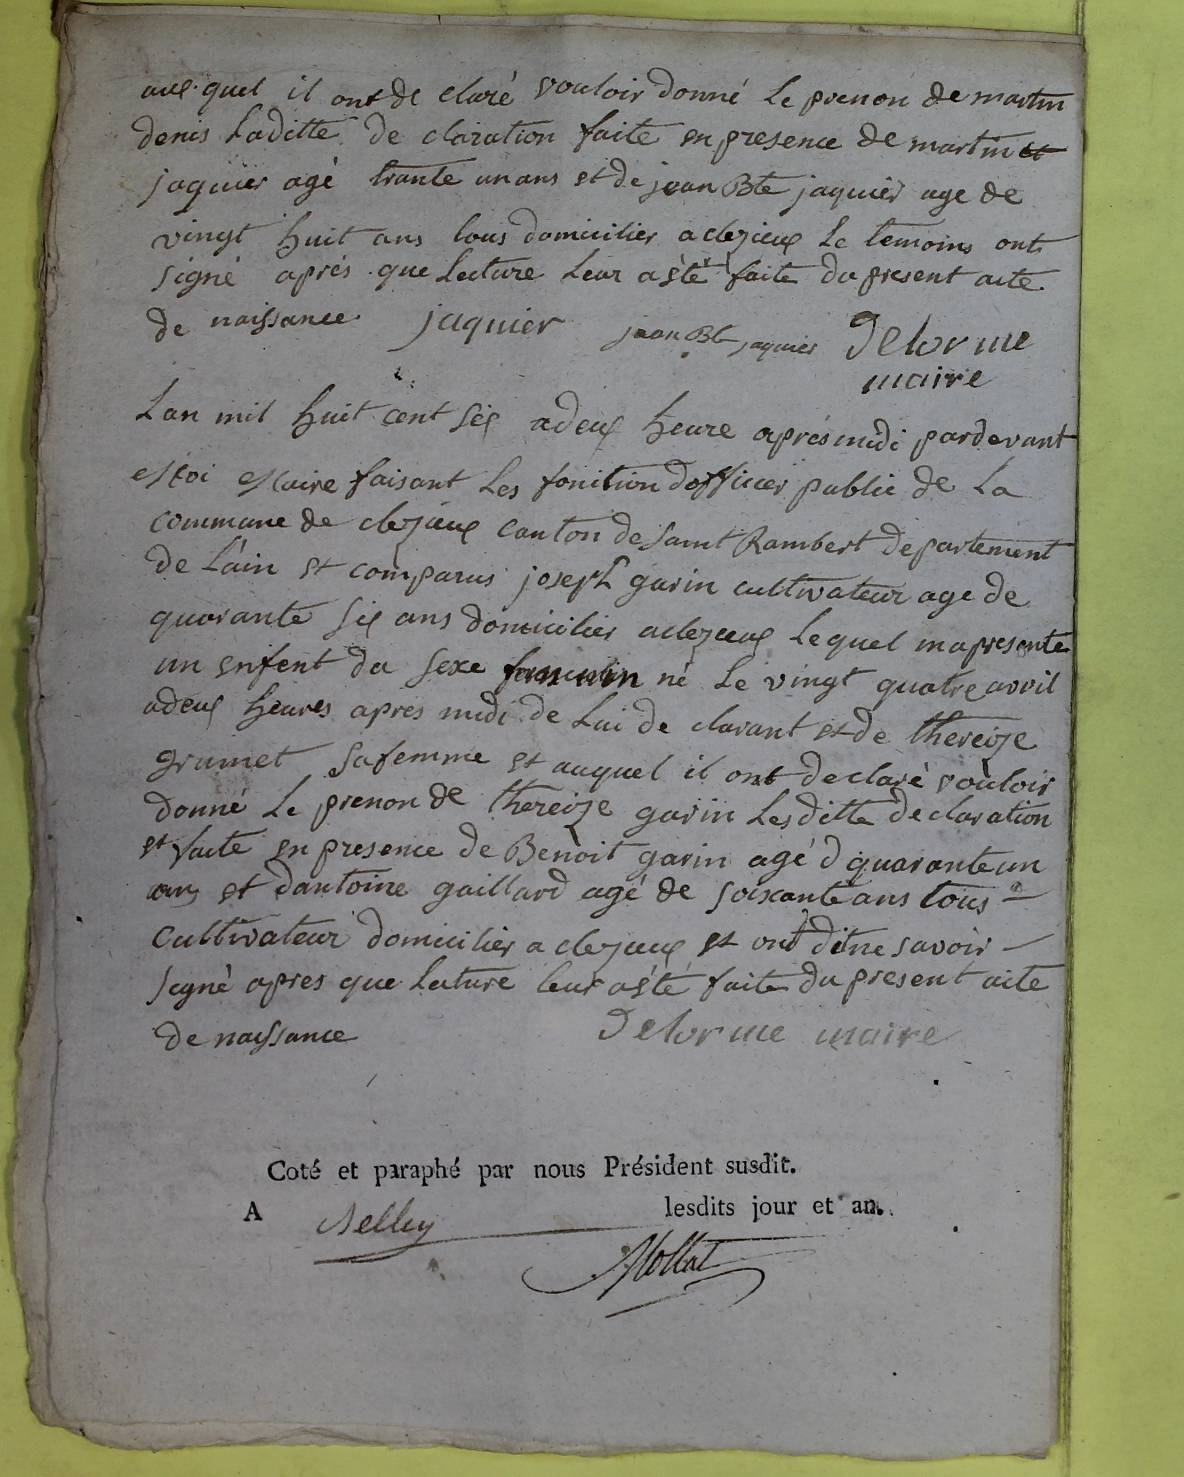 auf quel il ont de claré vouloir donné le prenon de martin
denis laditte de claration faite en presence de martin et
jaquier agé trante un ans et de jean Bte jaquier age de
vingt huit ans tous domicilier a clezieux le temoins ont
signé aprés que lecture leur a étè faite du present acte
de naissance jaquier jean Bt jaquier Delorme
maire
Lan mil huit cent six a deux heure aprés midi pardevant
Moi Maire faisant les fonition dofficier public de la
commune de clezieux canton de saint Rambert departement
de l'ain et comparus joseph garin cultivateur age de
quarante six ans domicilier a clezieux lequel ma presente
un enfent du sexe né le vingt quatre avril
a deux heures apres midi de lui de clarant et de thereize
grumet sa femme et auquel il ont declaré vouloir
donné le prenon de thereize garin lesditte declaration
et faite en presence de Benoit garin agé d quarante un
ans et dantoine gaillard agé de soixante ans tous
cultivateur domicilier a clezieux et ont dit ne savoir
signé apres que lecture leur a été faite du present acte
de naissance Delorme maire
Coté et paraphé par nous Président susdit.
A Belley lesdits jour et an.
Mollat